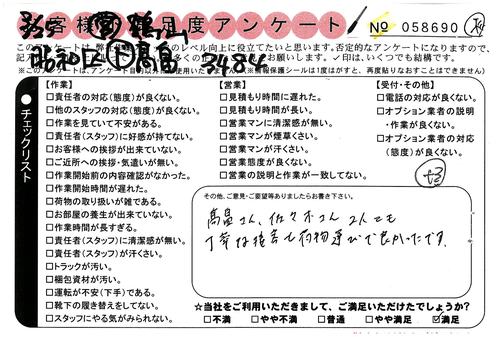 お客様満足度アンケート
№ 058690
このアンケートは
のレベル向上に役立てたいと思います。否定的なアンケートになりますので、
お願いします。✓印は、いくつでも結構です。
3484
チェックリスト
【作業】
□責任者の対応(態度)が良くない。
□他のスタッフの対応(態度)が良くない。
□作業を見ていて不安がある。
□責任者(スタッフ)に好感が持てない。
□お客様への挨拶が出来ていない。
□ご近所への挨拶・気遣いが無い。
□作業開始前の内容確認がなかった。
□作業開始時間が遅れた。
□荷物の取り扱いが雑である。
□お部屋の養生が出来ていない。
□作業時間が長すぎる。
□責任者(スタッフ)に清潔感が無い。
□責任者(スタッフ)が汗くさい。
□トラックが汚い。
□梱包資材が汚い。
□運転が不安(下手)である。
□靴下の履き替えをしてない。
□スタッフにやる気がみられない。
【営業】
□見積もり時間に遅れた。
□見積もり時間が長い。
□営業マンに清潔感が無い。
□営業マンが煙草くさい。
□営業マンが汗くさい。
□営業態度が良くない。
□営業の説明と作業が一致してない。
【受付・その他】
□電話の対応が良くない。
□オプション業者の説明
・作業が良くない。
□オプション業者の対応
(態度)が良くない。
その他、ご意見・ご要望等ありましたらお書き下さい。
髙畠さん、佐々木さん 2人とも
丁寧な接客と荷物運びで良かったです。
☆当社をご利用いただきまして、ご満足いただけたでしょうか?
□不満 □やや不満 □普通 □やや満足 ☑満足